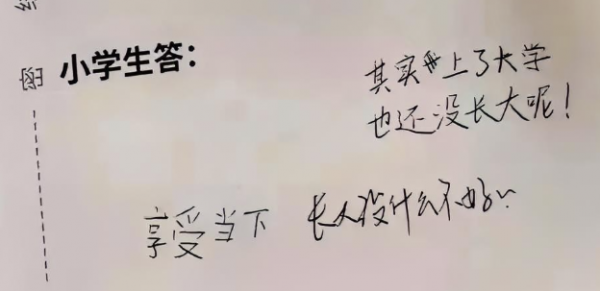 小学生答：
其实上了大学
也还没长大呢！
享受当下
长大没什么不好